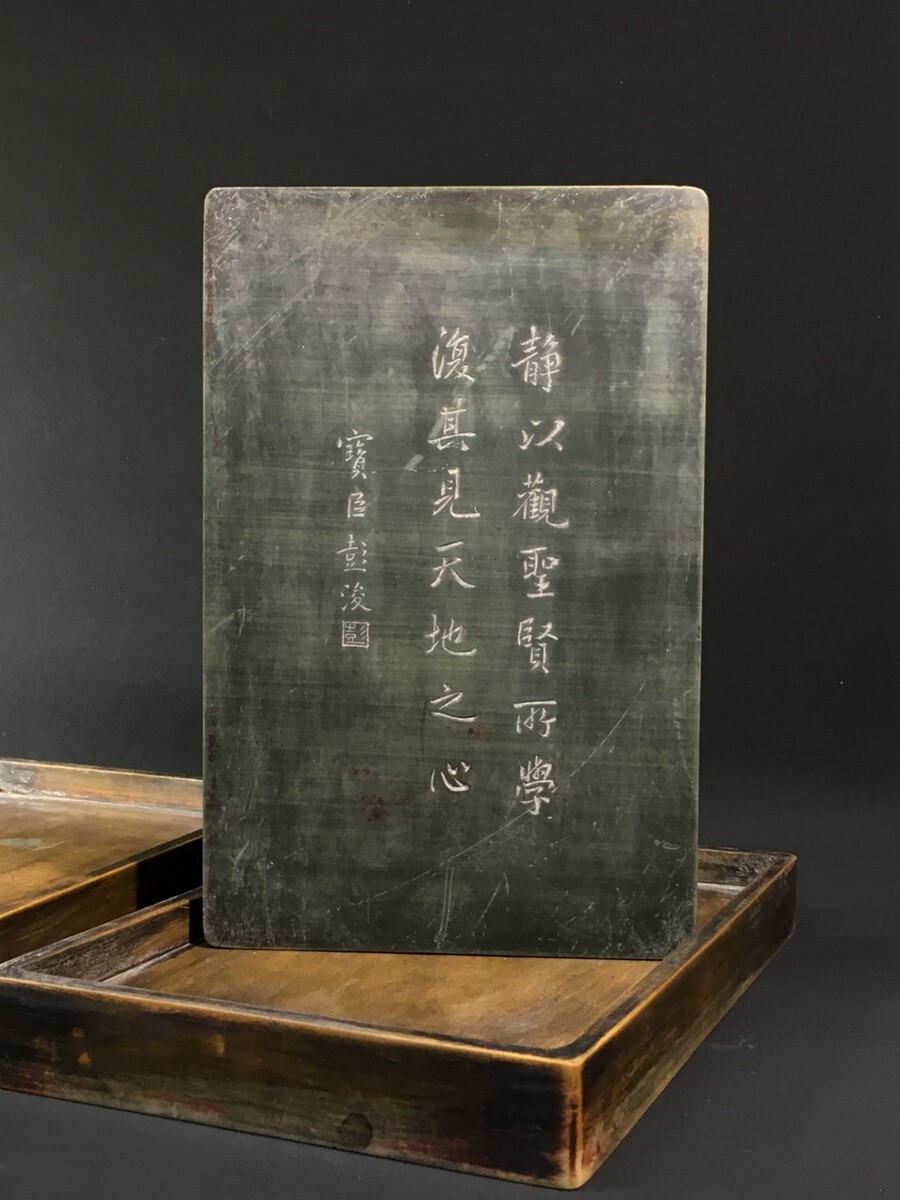 静以觀聖賢所學
復其見天地之心
寶臣彭浚
彭